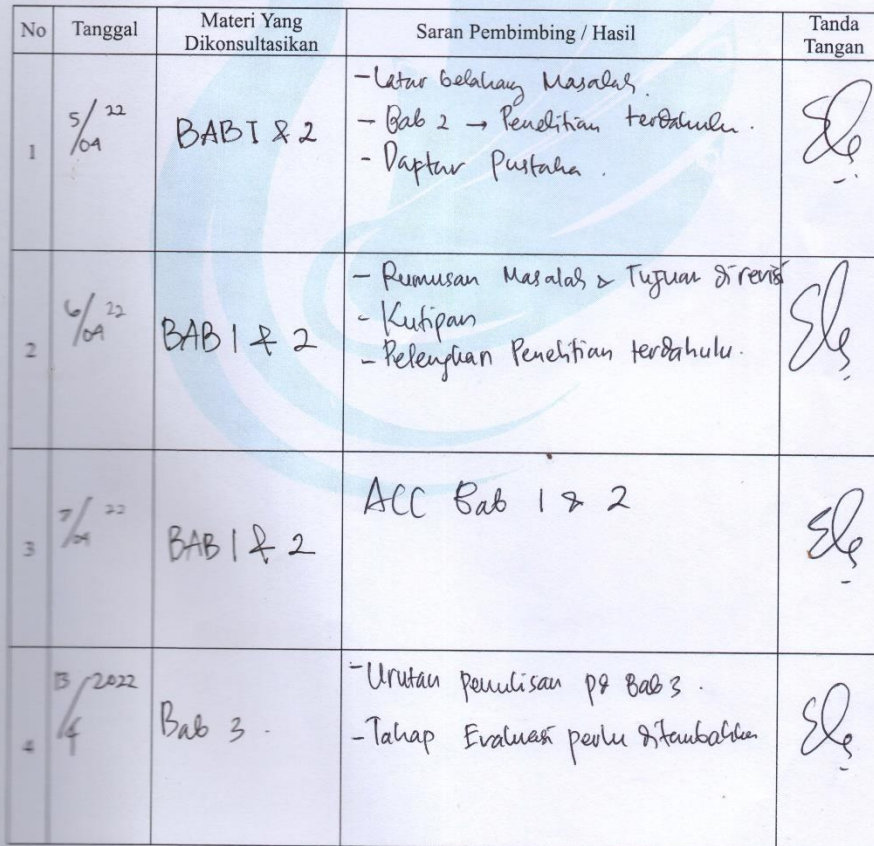 No
Tanggal
Materi Yang
Dikonsultasikan
Saran Pembimbing / Hasil
Tanda
Tangan
1
5/04 22
BAB I & 2
- Latar belakang Masalah.
- Bab 2 → Penelitian terdahulu.
- Daptar Pustaka.
2
6/04 22
BAB 1 & 2
- Rumusan Masalah & Tujuan direvisi
- Kutipan
- Penelitian terdahulu.
3
7/04 22
BAB 1 & 2
ACC Bab 1 & 2
4
13/4 2022
Bab 3.
- Urutan penulisan pd Bab 3.
- Tahap Evaluasi perlu ditambahkan